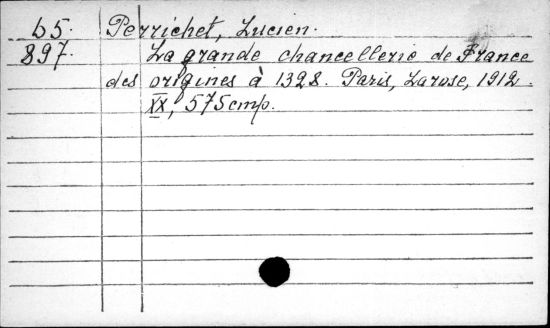 65. Perrichet, Lucien.
897. La grande chancellerie de France
des origines à 1328. Paris, Larose, 1912.
XX, 575 cmp.